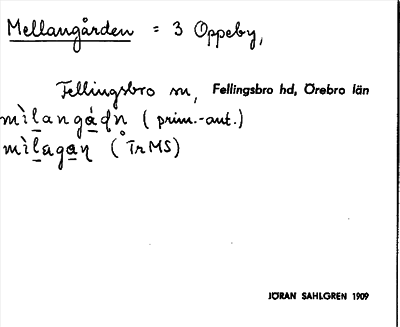 Mellangården = 3 Oppeby,
Fellingsbro sn, Fellingsbro hd, Örebro län
mìlangádn̥ (prim.-ant.)
mìlagan̥ (TrMS)
JÖRAN SAHLGREN 1909